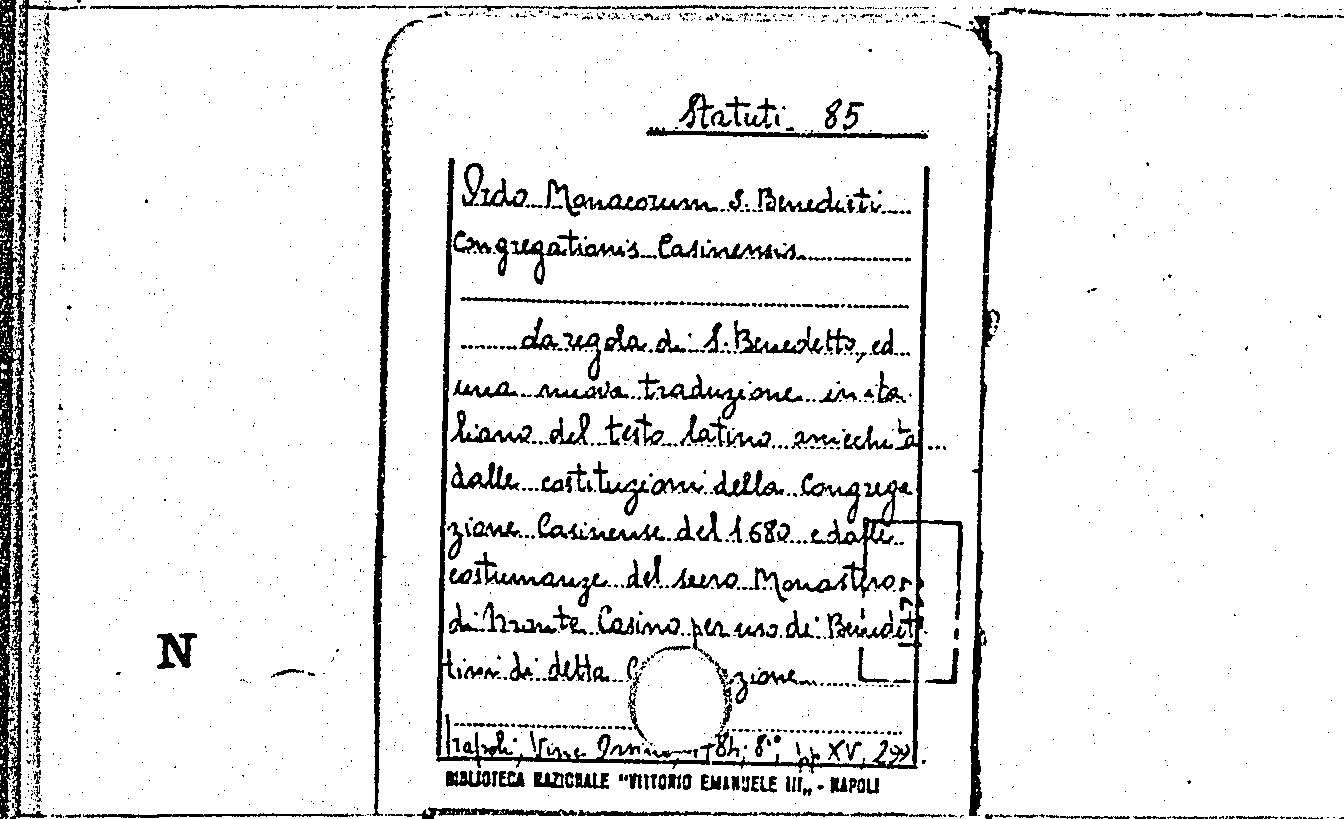 Statuti. 85
Ordo Monacorum S. Benedicti
Congregationis Casinensis
La regola di S. Benedetto, ed
una nuova traduzione in ita
liano del testo latino arricchita
dalle costituzioni della Congrega
zione Casinense del 1680 e dalle
costumanze del sacro Monastero
di Monte Casino per uso di Benedit
tini di detta zione
Napoli, 8°; pp XV, 299.
BIBLIOTECA NAZIONALE "VITTORIO EMANUELE III„ - NAPOLI
N